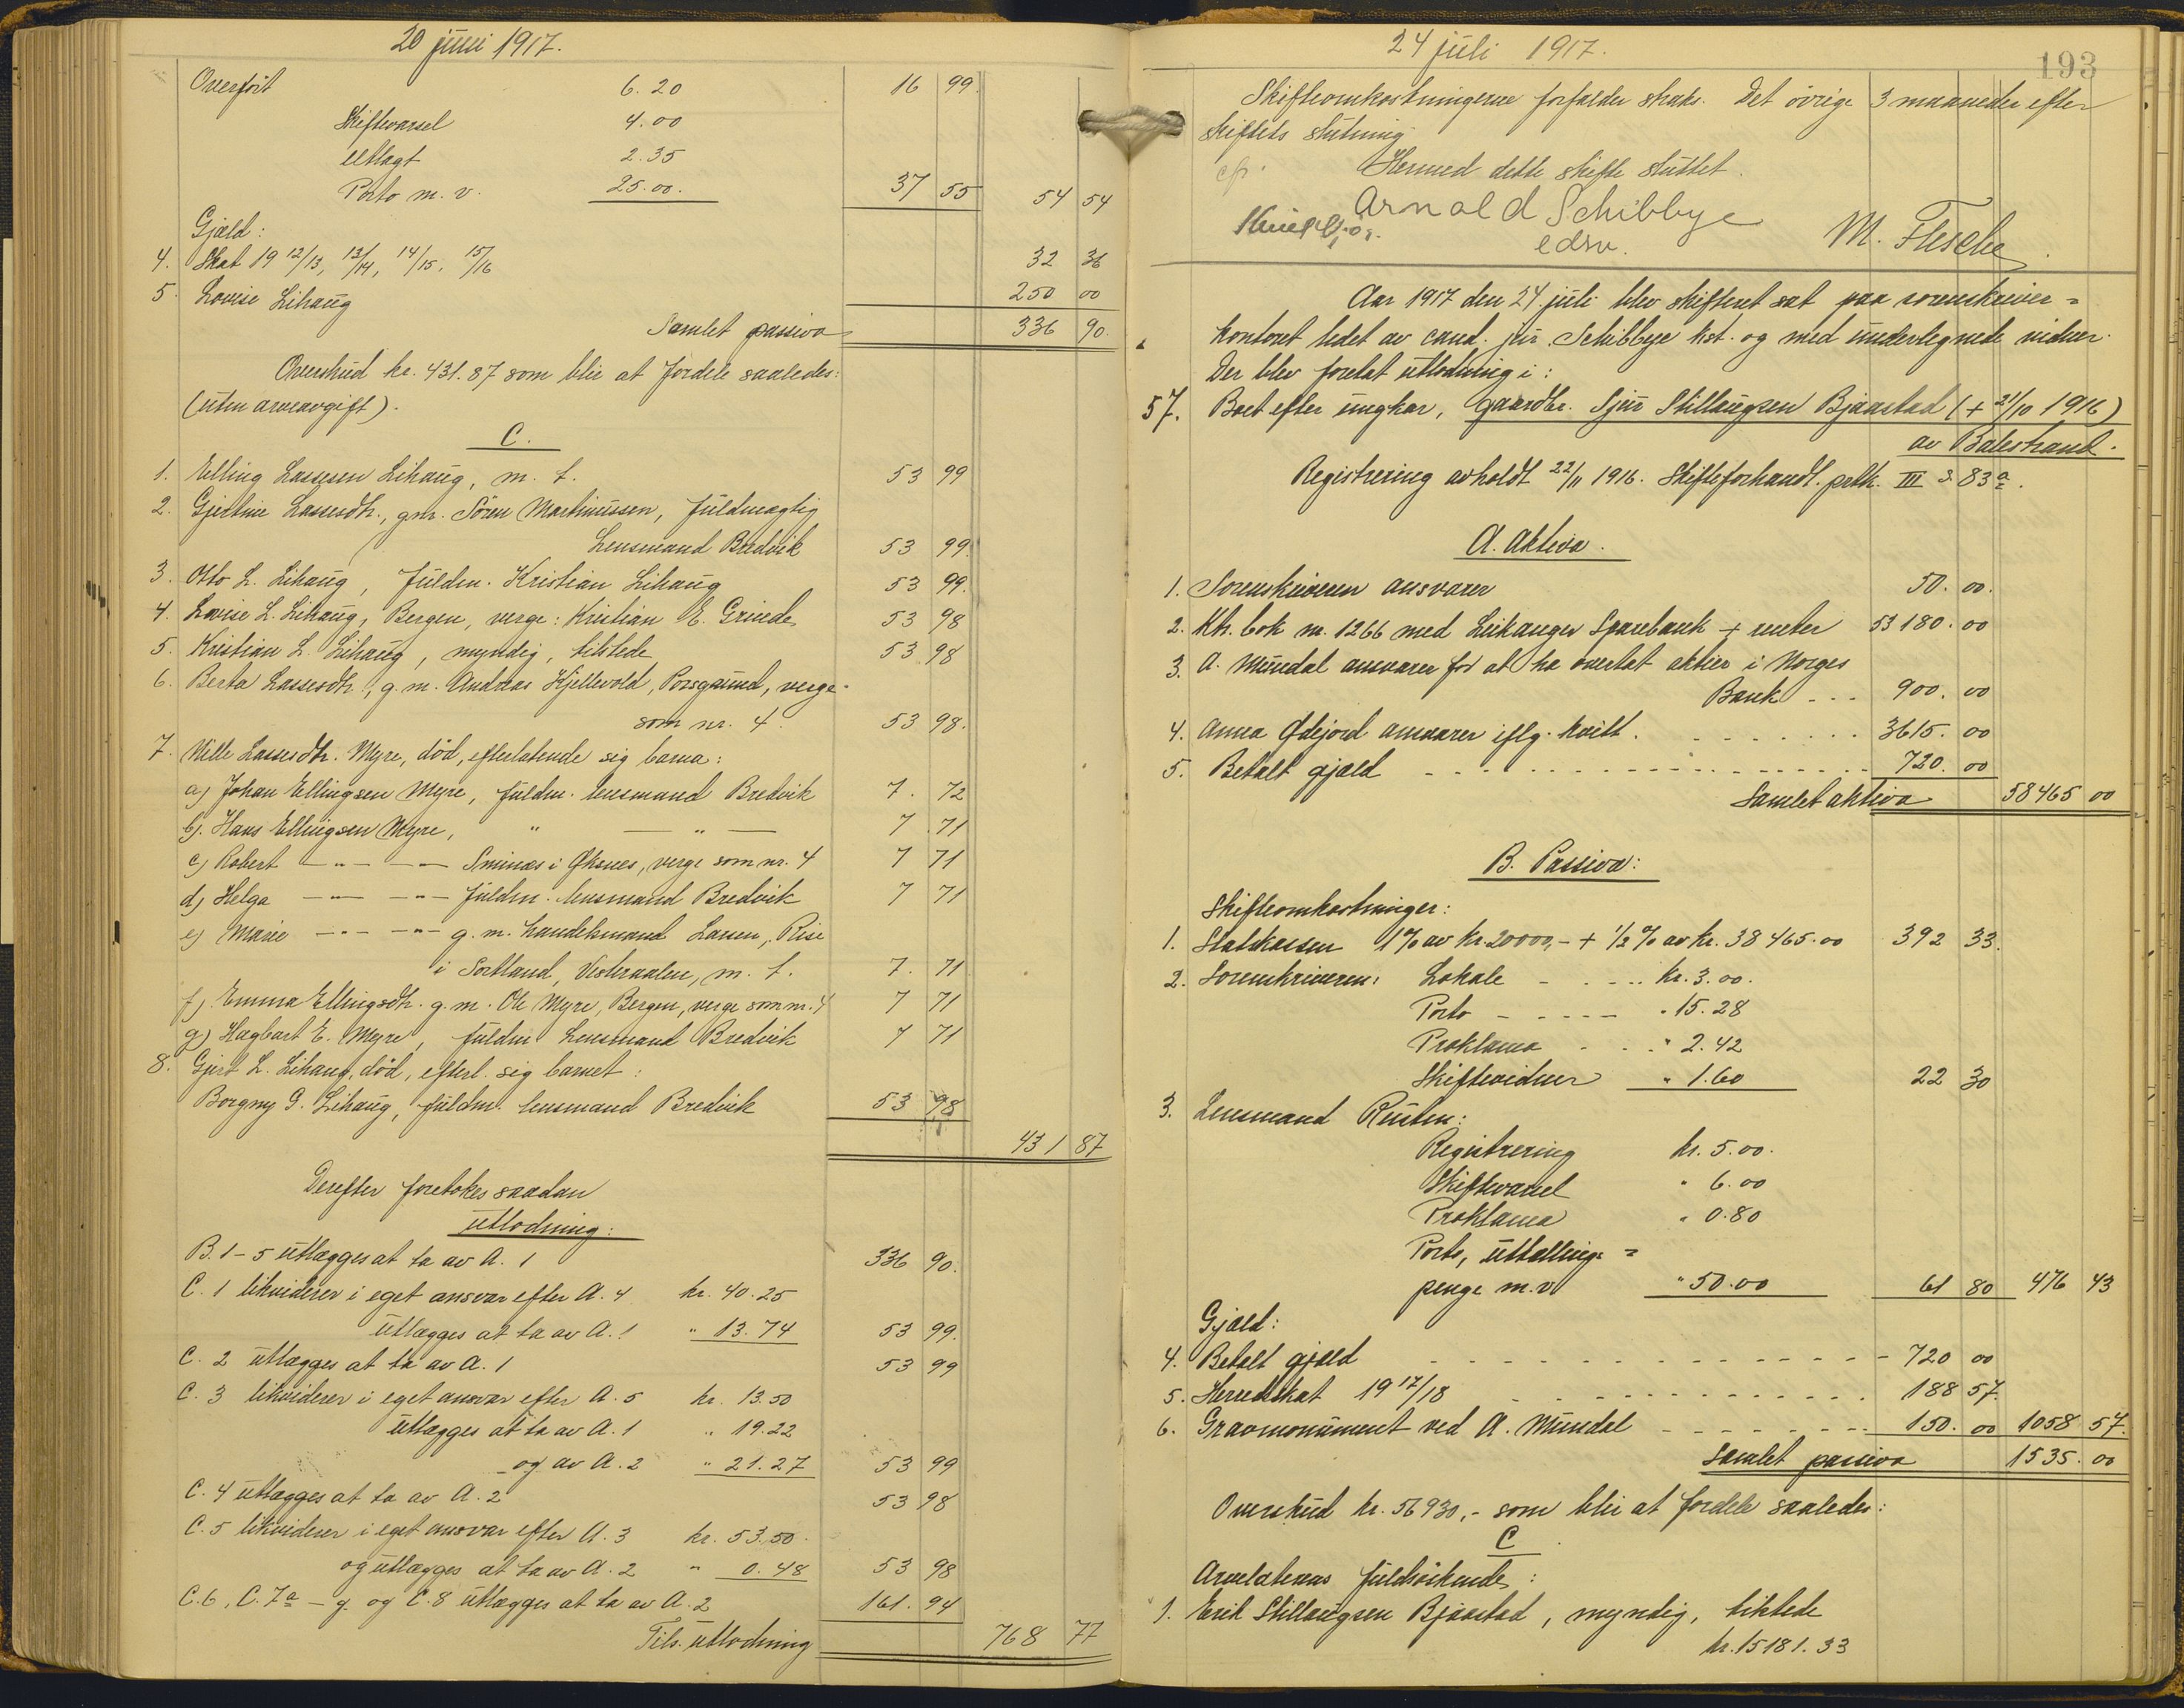 20 juni 1917.
Overført 6.20 16 99.
Skiftevarsel 4.00
Utlagt 2.35
Porto m. v. 25.00. 37 55 54 54
Gjæld:
4. Skat 19 12/13, 13/14, 14/15, 15/16 32 36
5. Lovise Lihaug 250 00
Samlet passiva 336 90.
Overskud kr. 431.87 som blir at fordele saaledes:
(uten arveavgift).
C.
1. Elling Lassesen Lihaug, m. t. 53 99
2. Gjertine Lassesdtr., gm. Søren Martinussen, fuldmægtig
Lensmand Bredvik 53 99.
3. Otto L. Lihaug, fuldm. Kristian Lihaug 53 99.
4. Lovise L. Lihaug, Bergen, verge: Kristian E. Grinde 53 98
5. Kristian L. Lihaug, myndig, tilstede 53 98
6. Berta Lassesdtr., g. m. Andreas Kjellevold, Porsgrund, verge
som nr. 4. 53 98.
7. Nille Lassesdtr. Myre, død, efterlatende sig barna:
a) Johan Ellingsen Myre, fuldm. lensmand Bredvik 7. 72
b). Hans Ellingsen Myre, " — " — 7 71
c) Robert — " — — " — Sminæs i Øksnes, verge som nr. 4 7 71
d) Helga — " — — " — fuldm. lensmand Bredvik 7 71
e) Marie — " — — " — g. m. handelsmand Larsen, Rise
i Sortland, Vesteraalen, m. t. 7. 71
f). Emma Ellingsdtr. g. m. Ole Myre, Bergen, verge som nr. 4 7 71
g) Hagbart E. Myre, fuldm Lensmand Bredvik 7 71
8. Gjert L. Lihaug, død, efterl. sig barnet:
Borgny G. Lihaug, fuldm. lensmand Bredvik 53 98
431 87
Derefter foretokes saadan
Utlodning:
B. 1-5 utlægges at ta av A. 1 336 90.
C. 1 likviderer i eget ansvar efter A. 4 kr. 40.25
utlægges at ta av A. 1 " 13.74 53 99.
C. 2 utlægges at ta av A. 1 53 99
C. 3 likviderer i eget ansvar efter A. 5 kr. 13.50
utlægges at ta av A. 1 " 19.22
og av A. 2 " 21.27 53 99
C. 4 utlægges at ta av A. 2 53 98
C. 5 likviderer i eget ansvar efter A. 3 kr. 53.50.
og utlægges at ta av A. 2 " 0.48 53 98
C. 6, C. 7a - g. og C. 8 utlægges at ta av A. 2 161. 94
Tils. utlodning 768 77
24 juli 1917.
193
Skifteomkostningerne forfalder straks. Det øvrige 3 maaneder efter
skiftets slutning.
Hermed dette skifte sluttet.
Arnold Schibbye
edsv.
M. Flesche
Aar 1917 den 24. juli blev skifteret sat paa sorenskriver=
kontoret ledet av cand. jur. Schibbye kst. og med undertegnede vidner.
Der blev foretat utlodning i:
57. Boet efter ungkar, gaardbr. Sjur Stillaugsen Bjaastad (+ 21/10 1916)
av Balestrand.
Registrering avholdt 22/11 1916. Skifteforhandl. protk. III s. 83a.
A. Aktiva.
1. Sorenskriveren ansvarer 50. 00.
2. Ktr. bok nr. 1266 med Leikanger Sparebank + renter 53 180. 00
3. A. Mundal ansvarer for at ha overtat aktier i Norges
Bank - - - 900. 00
4. Anna Ødejord ansvarer iflg. kvitt. - - - - 3615. 00
5. Betalt gjæld - - - - - - - 720. 00
Samlet aktiva 58465 00
B. Passiva:
Skifteomkostninger:
1. Statskassen 1% av kr. 20000,- + 1/2 % av kr. 38 465.00 392 33.
2. Sorenskriveren: Lokale - - - kr. 3.00.
Porto - - - - " 15.28
Proklama - - " 2.42
Skiftevidner " 1.60 22 30
3. Lensmand Rusten:
Registrering kr. 5.00.
Skiftevarsel " 6.00
Proklama " 0.80
Porto, uttællings=
penge m.v. " 50.00 61 80 476 43
Gjæld:
4. Betalt gjæld - - - - - - 720 00
5. Herredskat 19 17/18 - - - - - 188 57.
6. Gravmonument ved A. Mundal - - - - 150. 00 1058 57.
Samlet passiva 1535. 00
Overskud kr. 56930,- som blir at fordele saaledes:
C.
Arvelaterens fuldsøskende:
1. Erik Stillaugsen Bjaastad, myndig, tilstede
kr. 15181.33